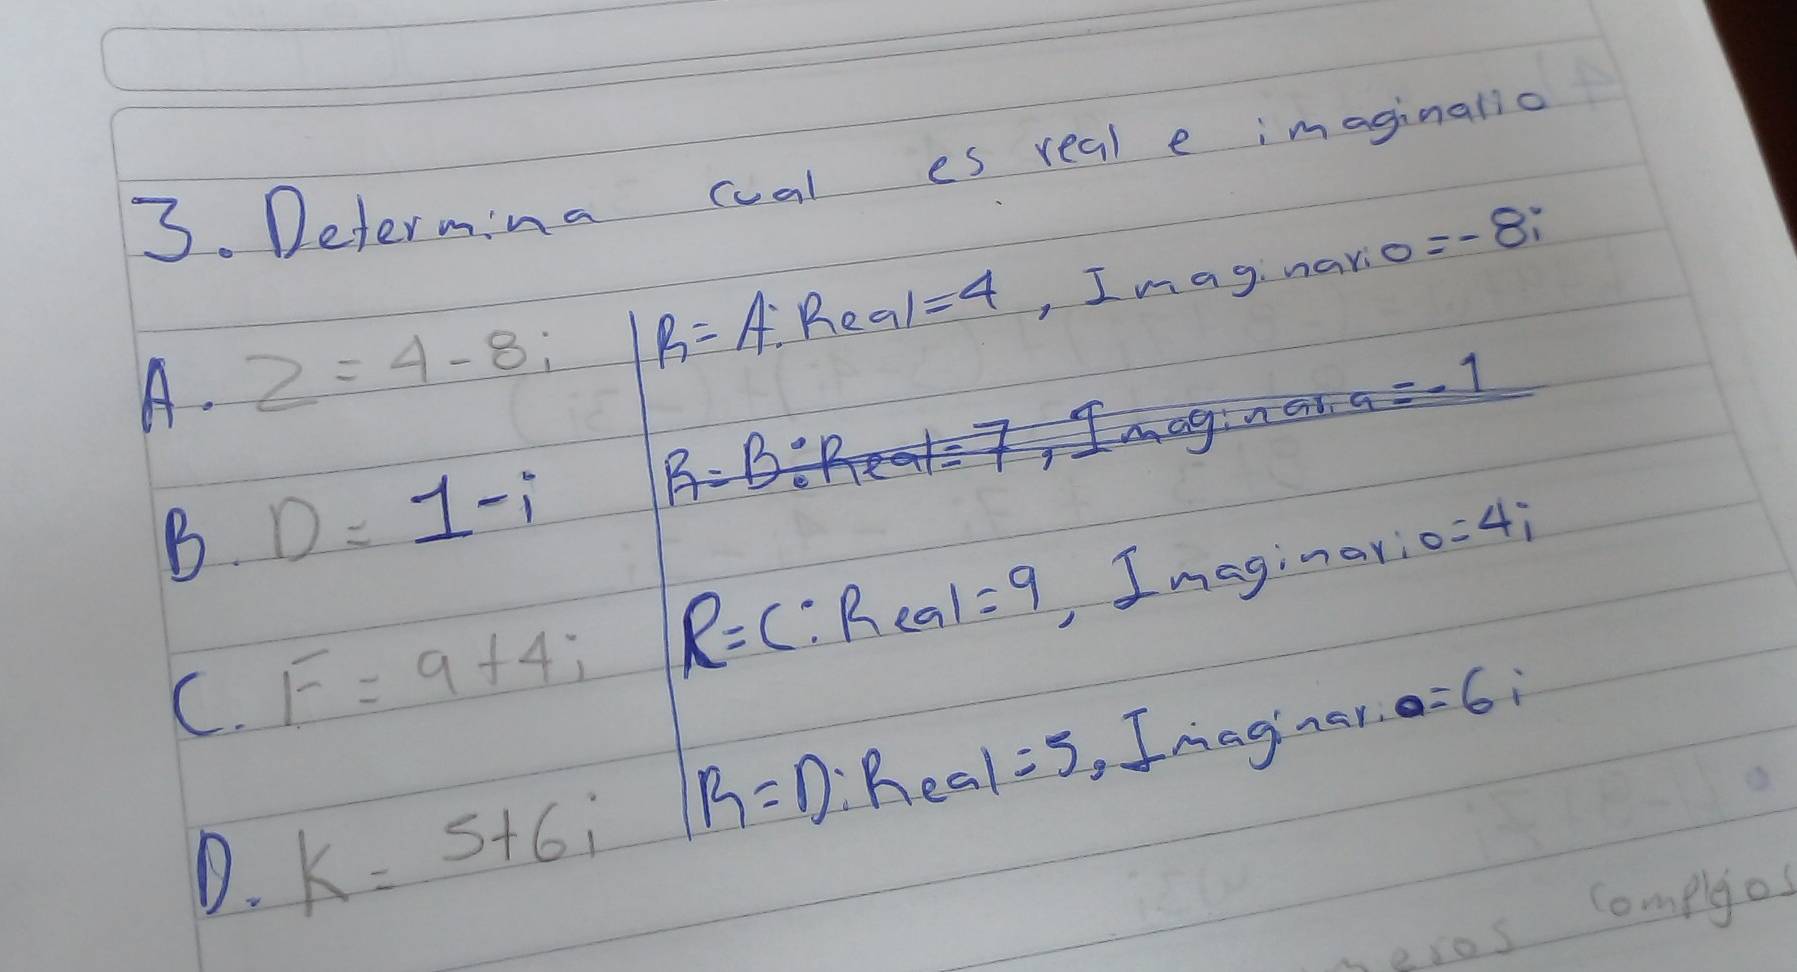 3. Determina cual es real e imaginario
A. Z = 4 - 8i
R = A: Real = 4, Imaginario = - 8i
B. D = 1 - i
R = B: Real = 7, Imaginaria = - 1
C. F = 9 + 4i
R = C: Real = 9, Imaginario = 4i
D. K = 5 + 6i
R = D: Real = 5, Imaginario = 6i
complejos